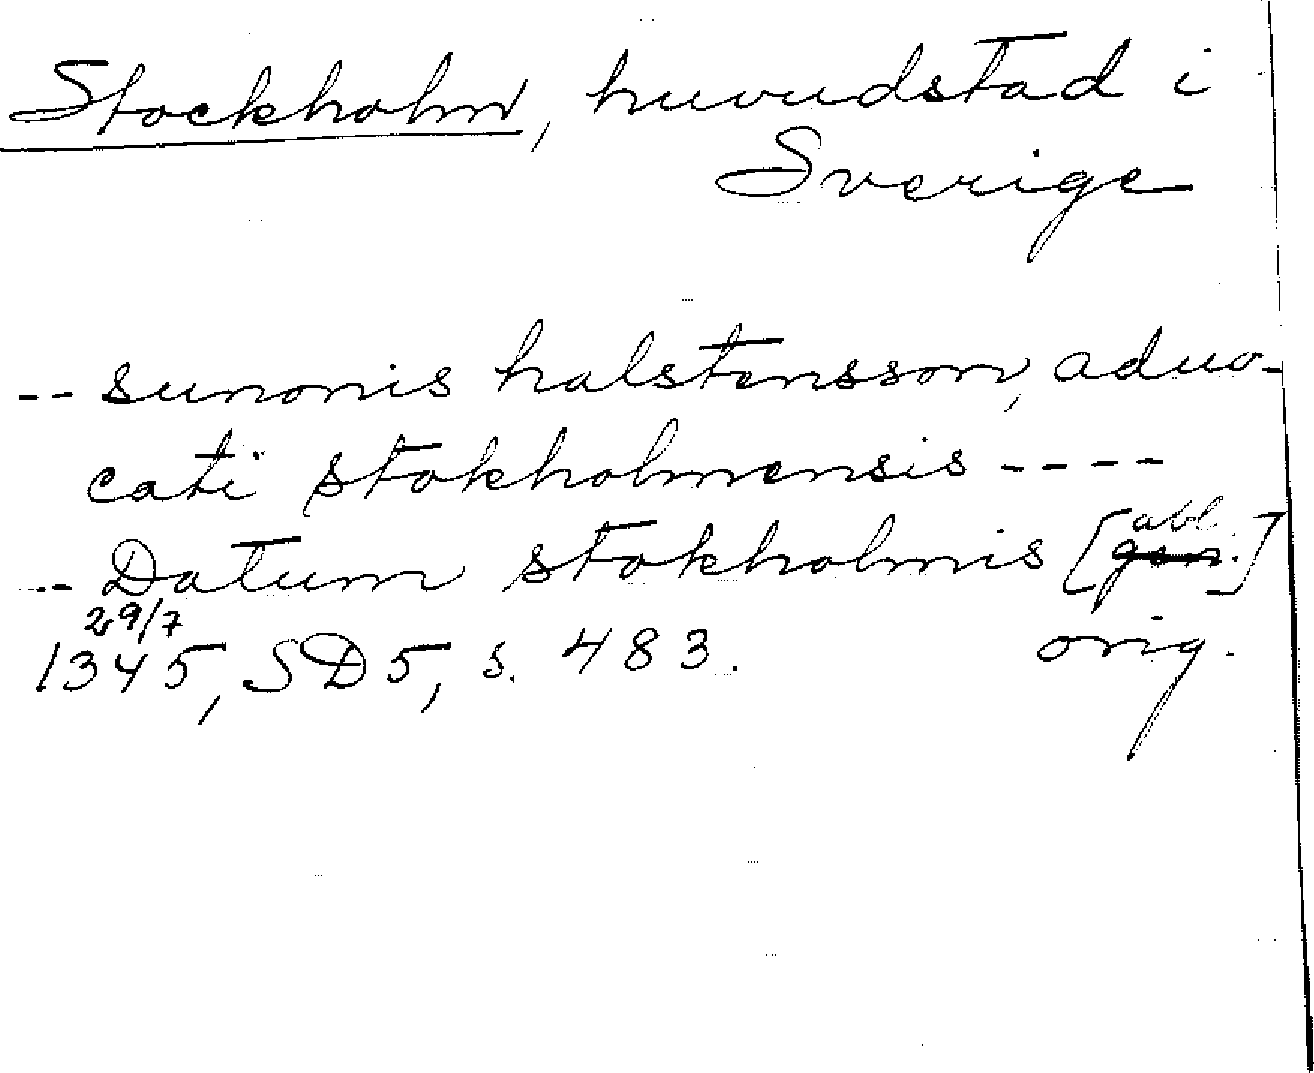 Stockholm, huvudstad i
Sverige
-- sunonis halstensson, aduo-
cati stokholmensis ----
-- Datum stokholmis [gen. abl.]
29/7
1345, SD5, s. 483. orig.